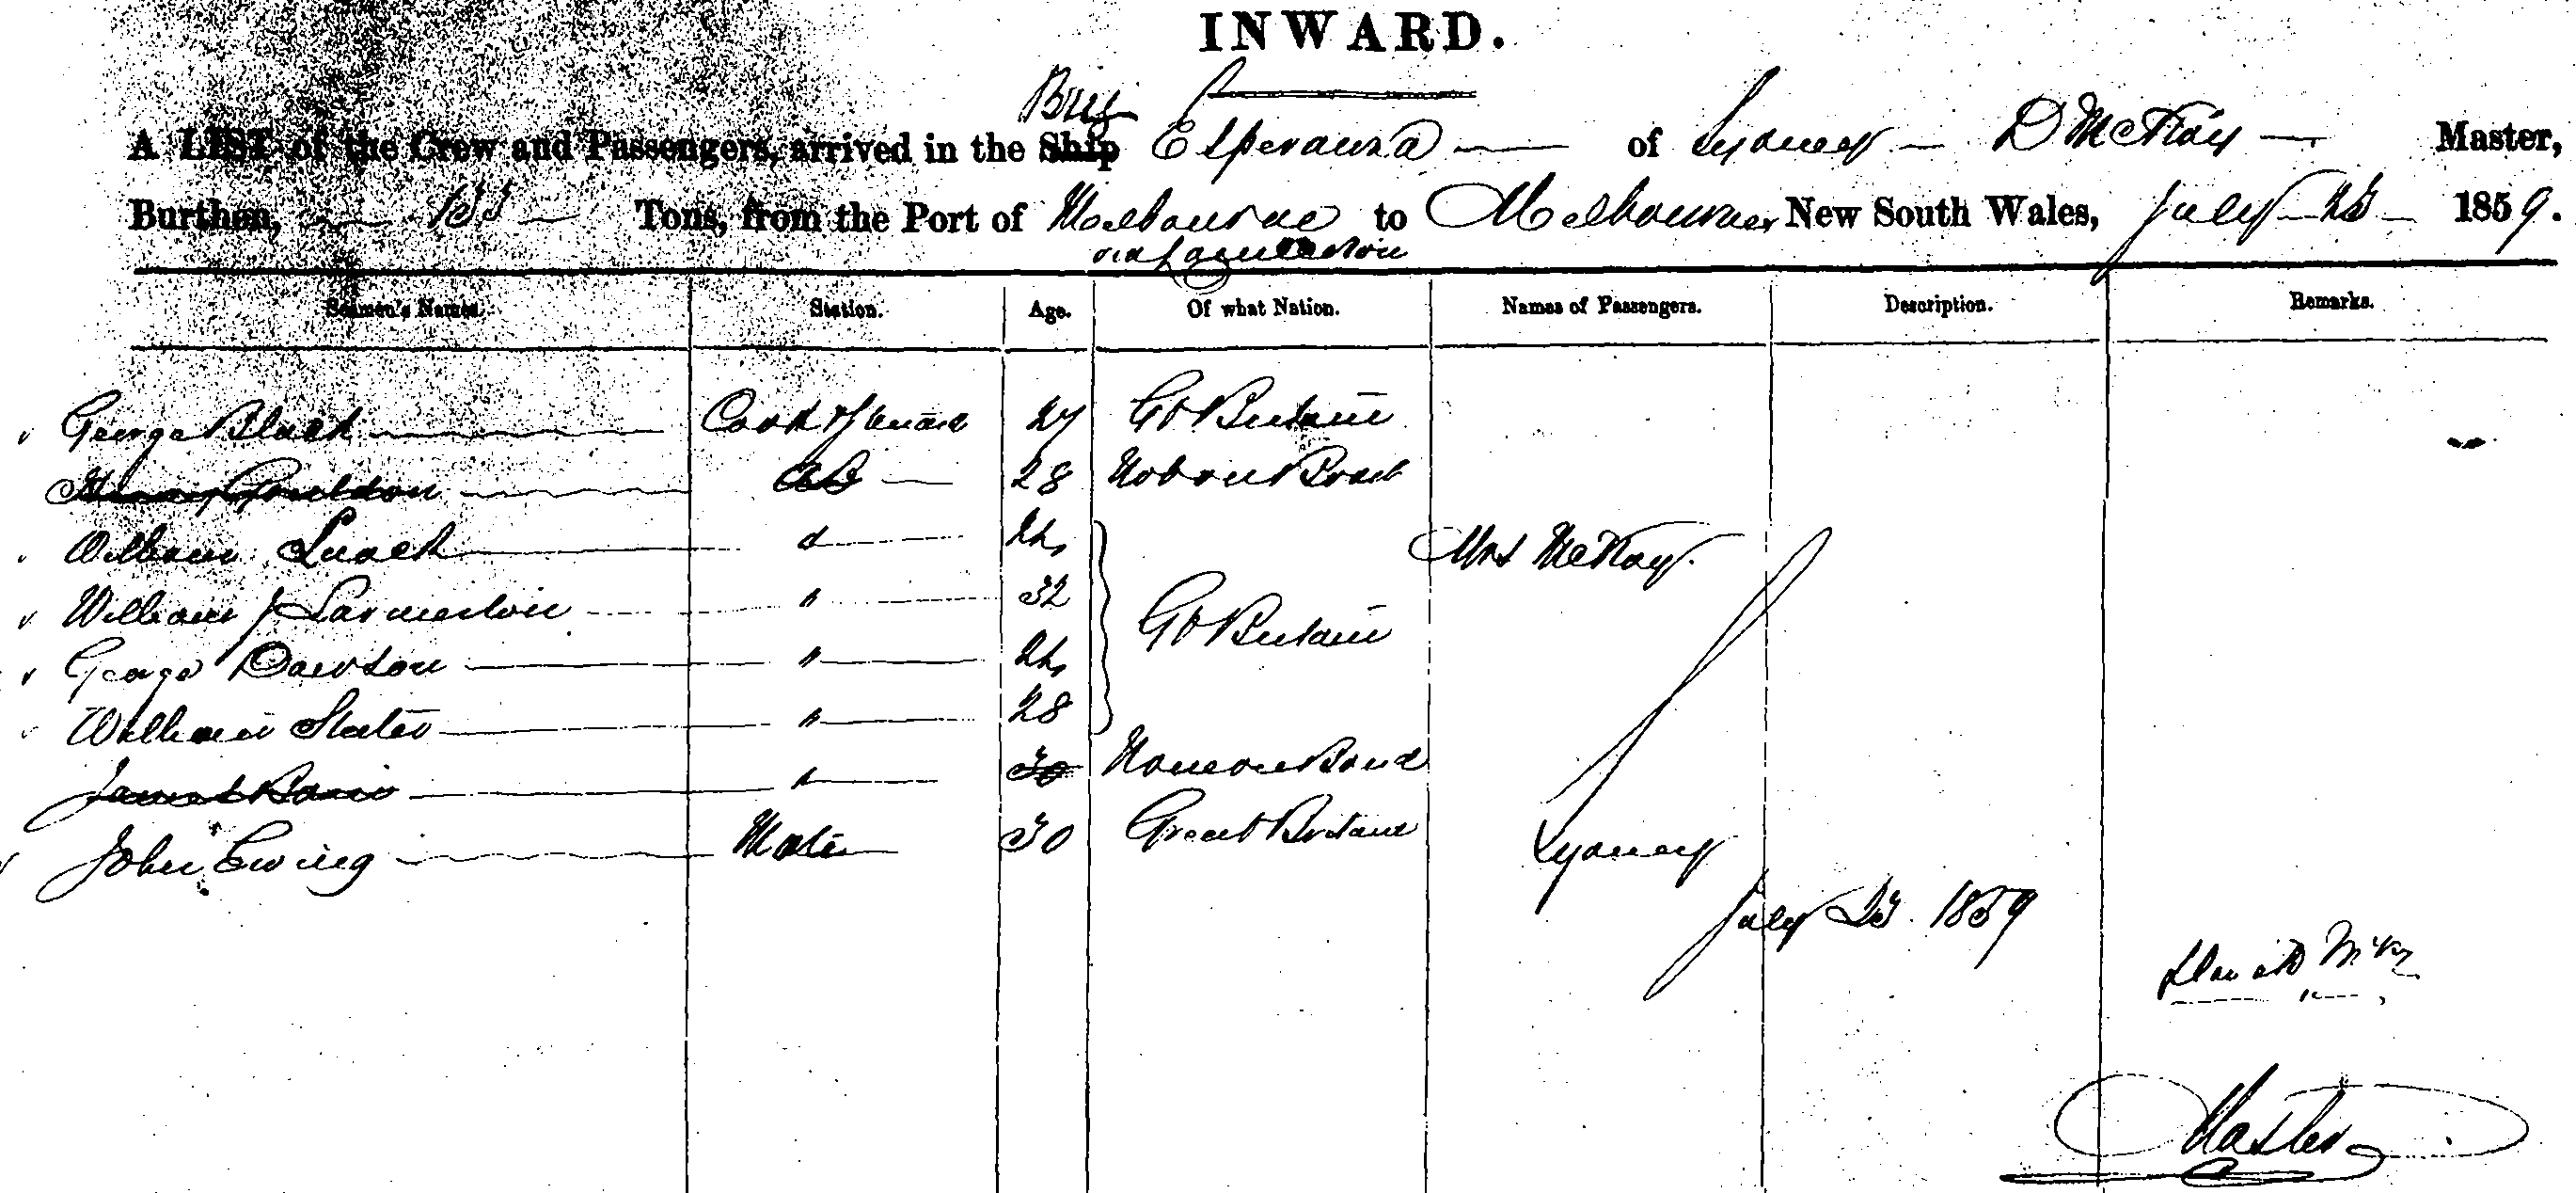 INWARD.
Brig
A LIST of the Crew and Passengers, arrived in the Ship Esperanza of Sydney D McKay Master,
Burthen, Tons, from the Port of Melbourne to Melbourne New South Wales, July 23 1859.
via
Seamen's Names. Station. Age. Of what Nation. Names of Passengers. Description. Remarks.
George Black Cook & 27 Gt Britain
Henry AB 28 Not on Board
William 24 Mrs McKay.
William J " 32 Gt Britain
George Dawson " 24
William Slater " 28
James " 30 Not on Board
John Ewing Mate 30 Great Britain
Sydney
July 23. 1859
Master